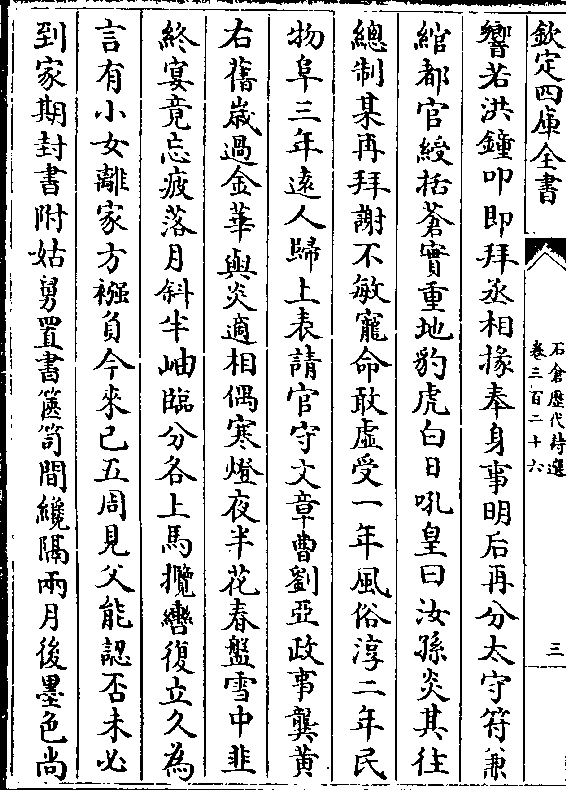 欽定四庫全書
石倉歷代詩選
卷三百二十六
三
響若洪鐘叩即拜丞相掾奉身事明后再分太守符兼
綰都官綬括蒼實重地豹虎白日吼皇曰汝孫炎其往
總制某再拜謝不敏寵命敢虛受一年風俗淳二年民
物阜三年遠人歸上表請官守文章曹劉亞政事龔黃
右舊歲過金華與炎適相偶寒燈夜半花春盤雪中韭
終宴竟忘疲落月斜半岫臨分各上馬攬轡復立久為
言有小女離家方襁負今來已五周見父能認否未必
到家期封書附姑舅置書篋笥間纔隔兩月後墨色尚